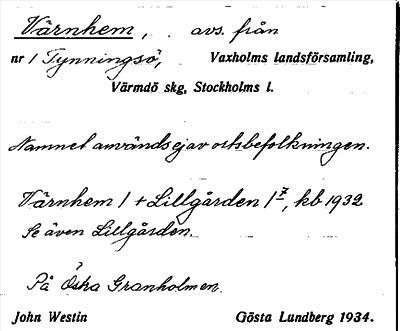 Värnhem, . avs. från
nr 1 Tynningsö, Vaxholms landsförsamling,
Värmdö skg, Stockholms l.
Namnet användes ej av ortsbefolkningen.
Värnhem 1 + Lillgården 1⁷, kb 1932
Se även Lillgården.
På Östra Granholmen.
John Westin Gösta Lundberg 1934.